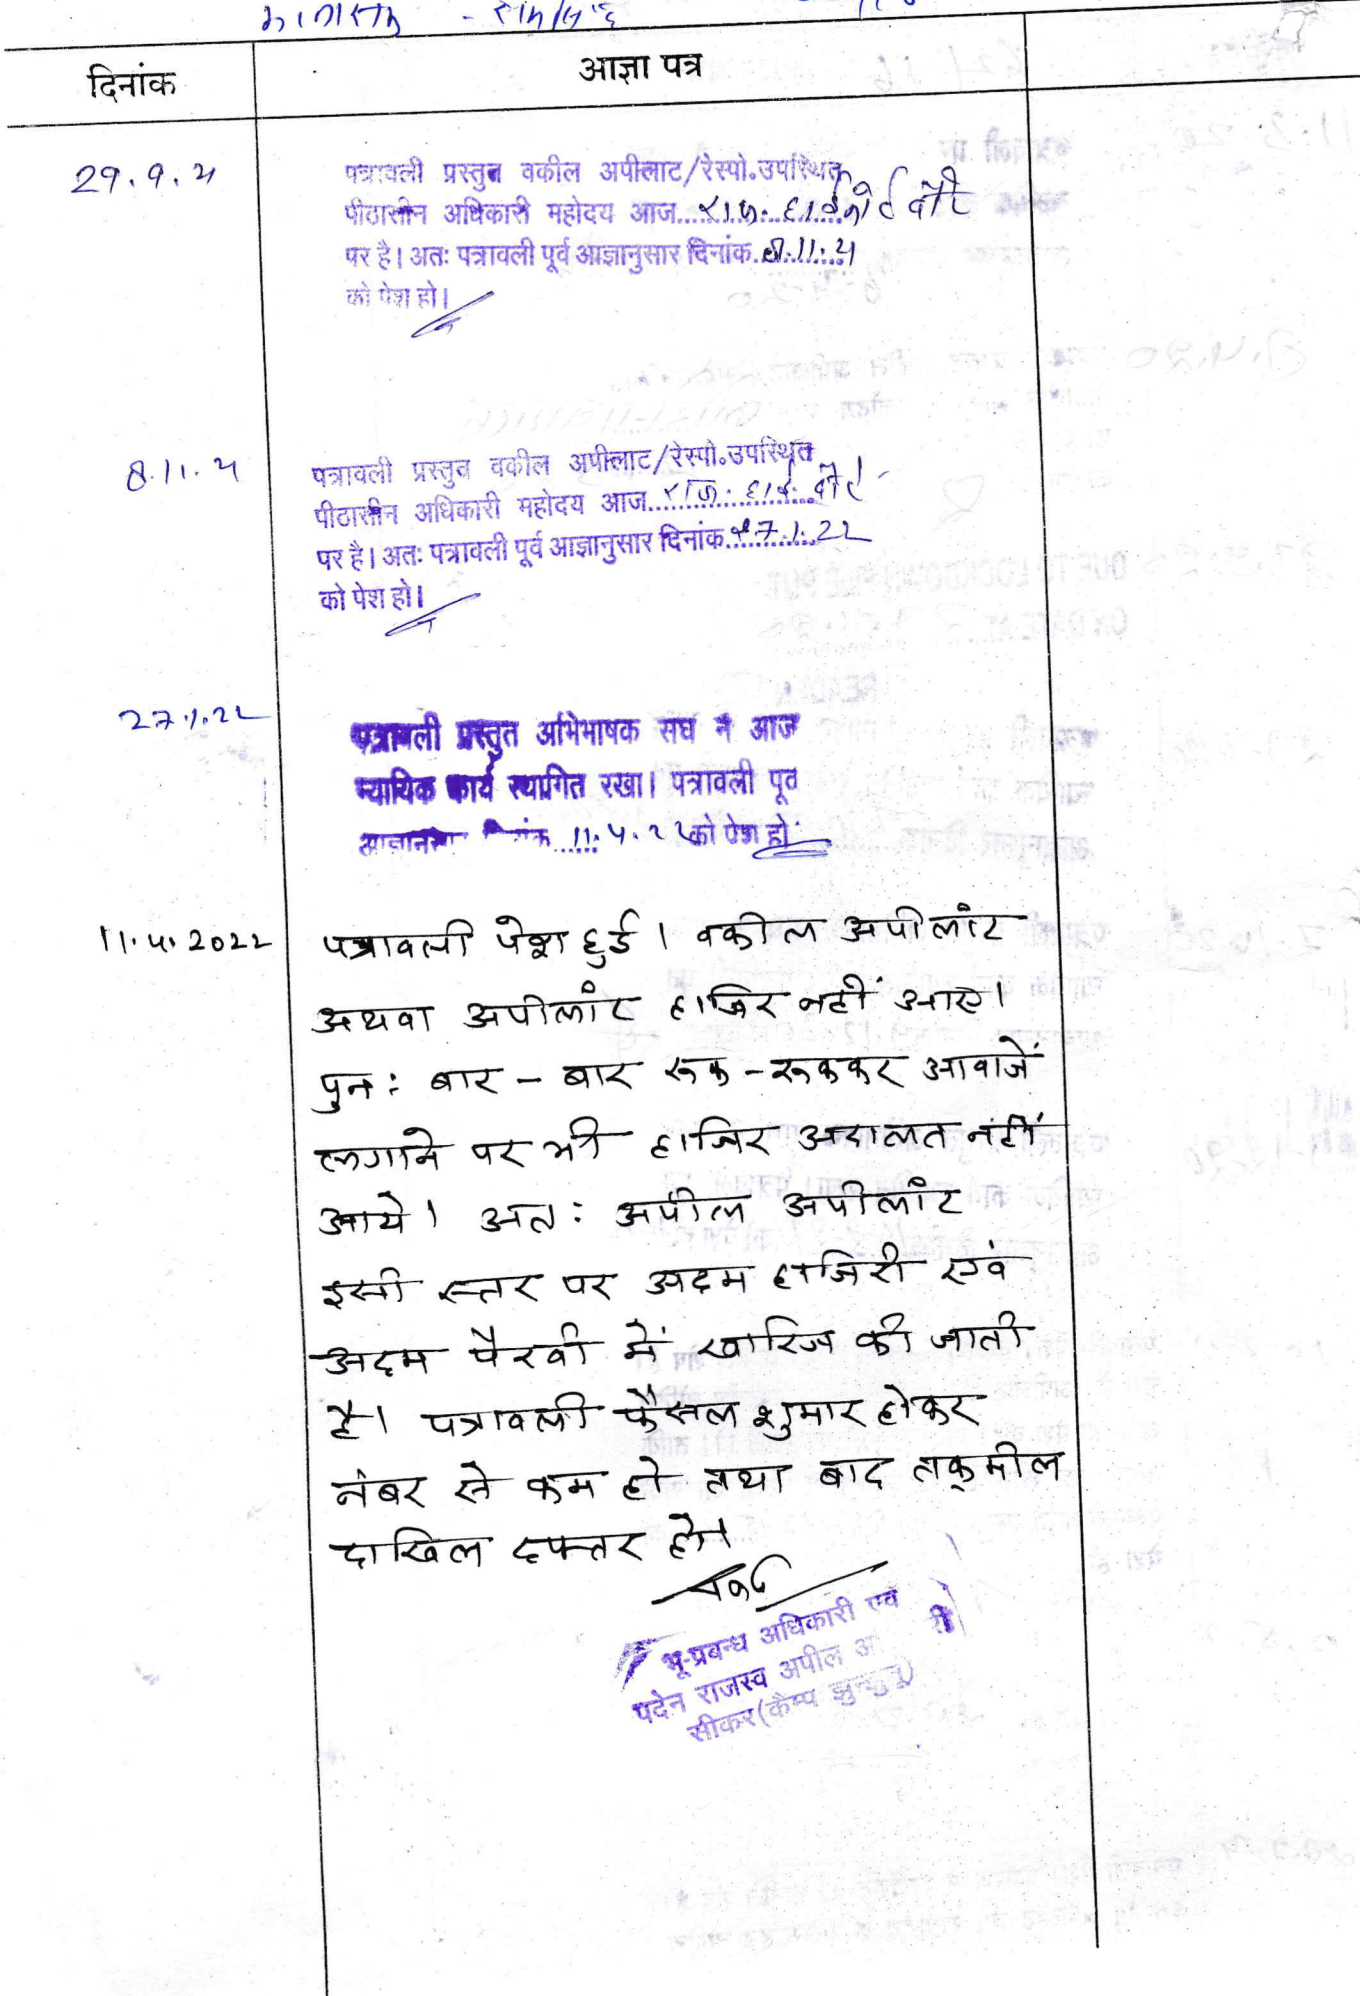 दिनांक
आज्ञा पत्र
29.9.21
पत्रावली प्रस्तुत वकील अपीलाट/रेस्पो.उपस्थित
पीठासीन अधिकारी महोदय आज....राज. हाईकोर्ट दौरे
पर है। अतः पत्रावली पूर्व आज्ञानुसार दिनांक..8.11.21
को पेश हो।
8.11.21
पत्रावली प्रस्तुत वकील अपीलाट/रेस्पो.उपस्थित
पीठासीन अधिकारी महोदय आज.....राज.
पर है। अतः पत्रावली पूर्व आज्ञानुसार दिनांक..27.1.22
को पेश हो।
27.1.22
पत्रावली प्रस्तुत अभिभाषक संघ ने आज
न्यायिक कार्य स्थागित रखा। पत्रावली पूर्व
11.4.22 को पेश हो
11.4.2022
पत्रावली पेश हुई। वकील अपीलांट
अथवा अपीलांट हाजिर नहीं आए।
पुनः बार-बार रूक-रूककर आवाजें
लगाने पर भी हाजिर अदालत नहीं
आये। अतः अपील अपीलांट
इसी स्तर पर अदम हाजिरी एवं
अदम पैरवी में खारिज की जाती
है। पत्रावली फैसल शुमार होकर
नंबर से कम हो तथा बाद तक्मील
दाखिल दफ्तर हो।
भू-प्रबन्ध अधिकारी एवं
पदेन राजस्व अपील
सीकर(कैम्प झुन्झुनूं)